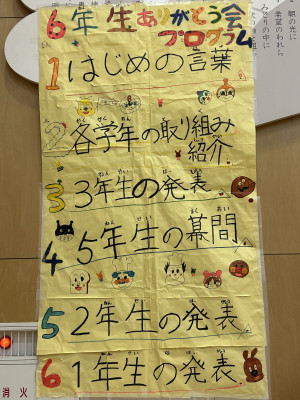 6年生ありがとう会
プログラム
1 はじめの言葉
2 各学年の取り組み
紹介
3 3年生の発表
4 5年生の幕間
5 2年生の発表
6 1年生の発表
朝の光に
希望のわれら
消火